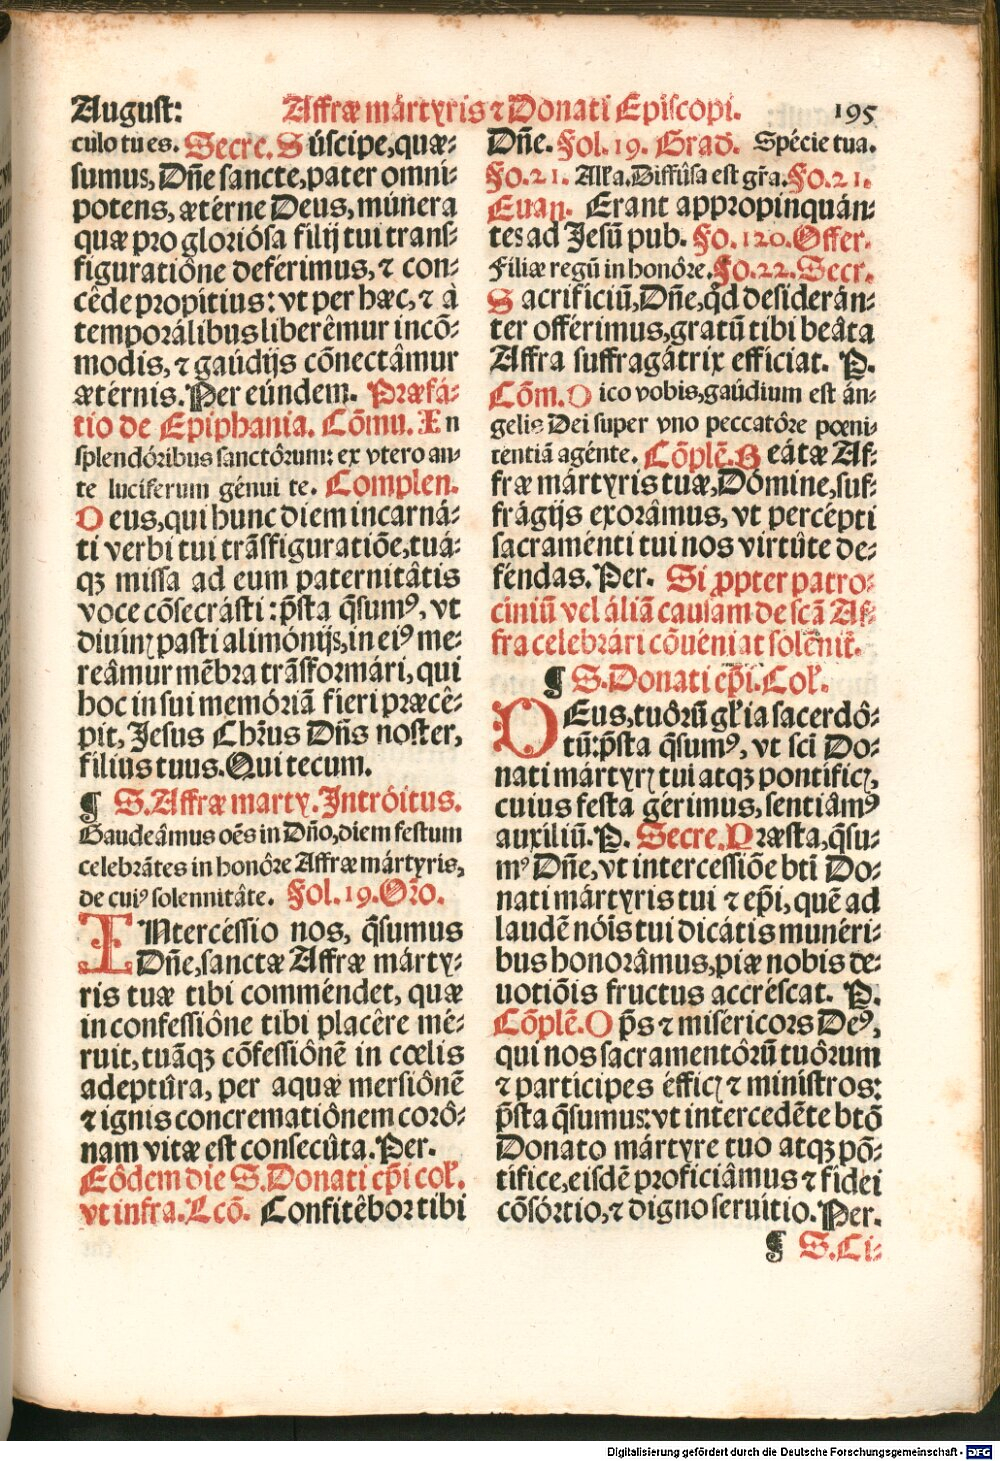 August: Affræ mártyris ⁊ Donati Episcopi. 195
culo tu es. Secre. Súscipe, quæ-
sumus, Dñe sancte, pater omni-
potens, ætérne Deus, múnera
quæ pro gloriósa filij tui trans-
figuratiône deferimus, ⁊ con-
cêde propítius: vt per hæc, ⁊ à
temporálibus liberêmur incõ-
modis, ⁊ gaúdijs cõnectâmur
ætérnis. Per eúndem. Præfá-
tio de Epiphania. Cõmu. In
splendóribus sanctôrum: ex vtero an-
te luciferum génui te. Complen.
Deus, qui hunc diem incarná-
ti verbi tui trãsfiguratiõe, tuá-
qꝫ missa ad eum paternitâtis
voce cõsecrásti: p̃sta q̃sumꝰ, vt
diuinꝫ pasti alimónijs, in eiꝰ me-
reâmur mẽbra trãsformári, qui
hoc in sui memóriã fieri præcê-
pit, Jesus Chr̃us Dñs noster,
filius tuus. Qui tecum.
¶ S. Affræ marty. Intróitus.
Gaudeâmus oẽs in Dño, diem festum
celebrãtes in honôre Affræ mártyris,
de cuiꝰ solennitâte. Fol. 19. Or̃o.
INtercéssio nos, q̃sumus
Dñe, sanctæ Affræ márty-
ris tuæ tibi comméndet, quæ
in confessiône tibi placêre mé-
ruit, tuãqꝫ cõfessiônẽ in cœlis
adeptûra, per aquæ mersiônẽ
⁊ ignis concrematiônem corô-
nam vitæ est consecûta. Per.
Eôdem die S. Donati ep̃i col̃.
vt infra. Lcõ. Confitêbor tibi
Dñe. Fol. 19. Grad. Spécie tua.
Fo. 21. All̃a. Diffûsa est gr̃a. Fo. 21.
Euan. Erant appropinquân-
tes ad Jesũ pub. Fo. 120. Offer.
Filiæ regũ in honôre. Fo. 22. Secr.
Sacrificiũ, Dñe, q̃d desiderãn-
ter offérimus, gratũ tibi beâta
Affra suffragâtrix efficiat. P.
Cõm. Dico vobis, gaúdium est án-
gelis Dei super vno peccatôre pœni-
tentiã agénte. Cõplẽ. Beátæ Af-
fræ mártyris tuæ, Dómine, suf-
frágijs exorâmus, vt percépti
sacraménti tui nos virtûte de-
féndas. Per. Si ꝓpter patro-
ciniũ vel áliã causam de scã Af-
fra celebrári cõuéniat solẽnit̃.
¶ S. Donati ep̃i. Col̃.
DEus, tuôrũ gl̃ia sacerdô-
tũ: p̃sta q̃sumꝰ, vt scĩ Do-
nati mártyrꝫ tui atqꝫ pontificꝫ,
cuius festa gérimus, sentiâmꝰ
auxiliũ. P. Secre. Præsta, q̃su-
mꝰ Dñe, vt intercessiõe btĩ Do-
nati mártyris tui ⁊ ep̃i, quẽ ad
laudẽ nõis tui dicátis munéri-
bus honorâmus, piæ nobis de-
uotiõis fructus accréscat. P.
Cõplẽ. Op̃s ⁊ miséricors Deꝰ,
qui nos sacramentôrũ tuôrum
⁊ participes éfficꝫ ⁊ minístros:
p̃sta q̃sumus: vt intercedẽte btõ
Donato mártyre tuo atqꝫ põ-
tifice, eisdẽ proficiâmus ⁊ fidei
cõsórtio, ⁊ digno seruítio. Per.
¶ S. Ci-
Digitalisierung gefördert durch die Deutsche Forschungsgemeinschaft - DFG